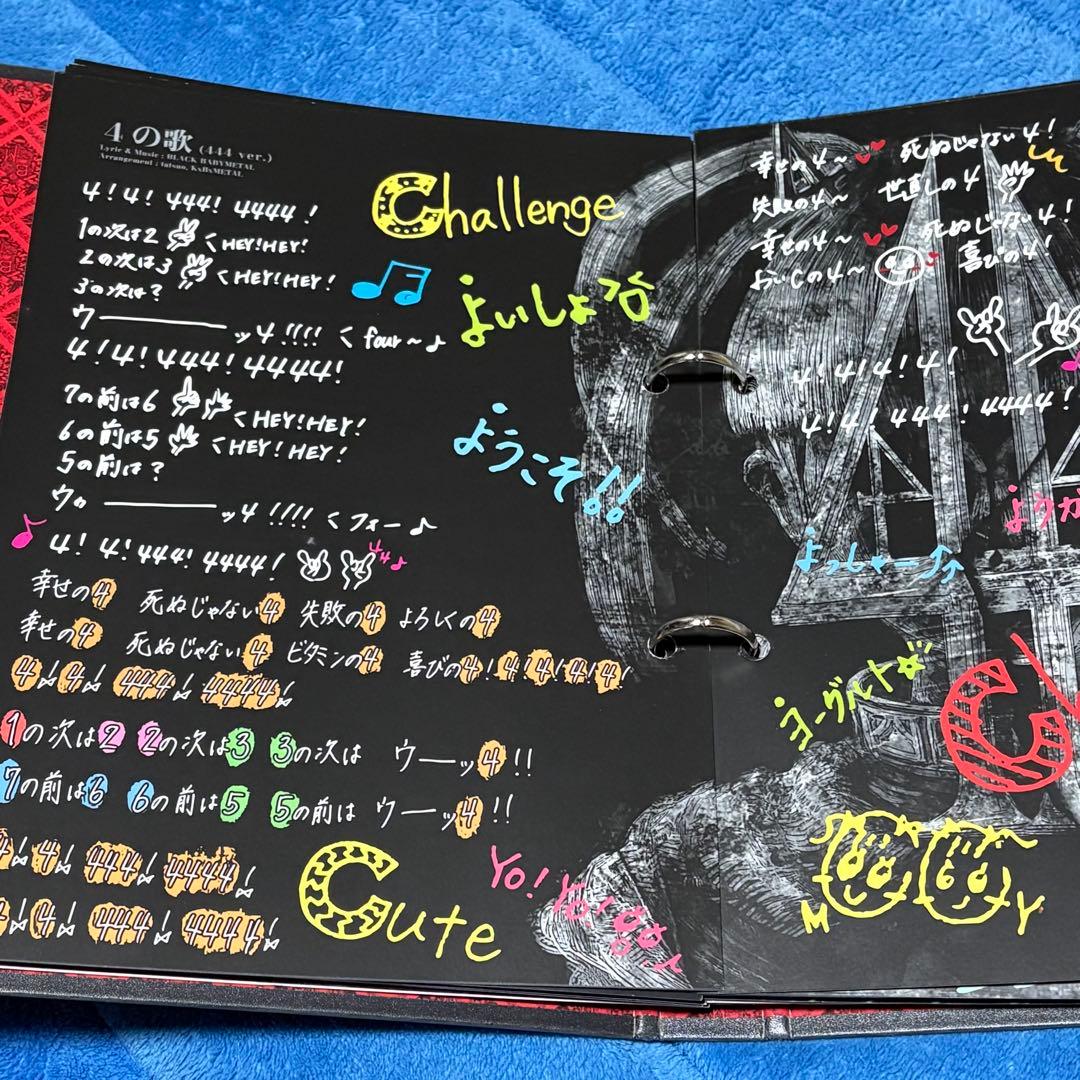 4の歌 (444 ver.)
Lyric & Music : BLACK BABYMETAL
Arrangement : tatsuo, KxBxMETAL
4!4! 444! 4444!
1の次は2 <HEY!HEY!
2の次は3 <HEY!HEY!
3の次は?
ウ――――ッ4!!!! < four~♪
4!4! 444! 4444!
7の前は6 <HEY!HEY!
6の前は5 <HEY!HEY!
5の前は?
ウゥ――――ッ4!!!! <フォー♪
4! 4! 444! 4444!
44♪
幸せの4 死ぬじゃない4 失敗の4 よろしくの4
幸せの4 死ぬじゃない4 ビタミンの4 喜びの4!4!4!4!4!
4!4! 444! 4444!
1の次は2 2の次は3 3の次は ウ――ッ4!!
7の前は6 6の前は5 5の前は ウ――ッ4!!
4!4! 444! 4444!
4!4! 444! 4444!
Challenge
よいしょ
ようこそ!!
Cute
Yo! Yo!
幸せの4~ 死ぬじゃない4!
失敗の4~ 世直しの4
幸せの4~ 死ぬじゃない4!
おいしの4~ 喜びの4!
4!4!4!4!
4!4! 444! 4444!
ようか
よっしゃー
ヨーグルト
C
M Y